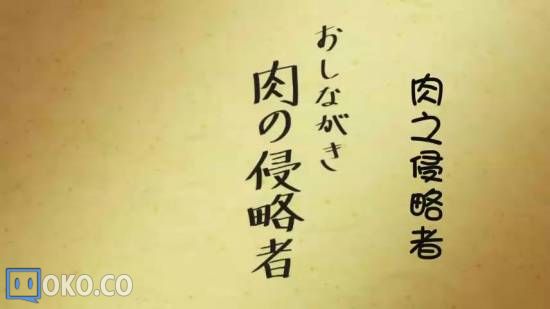 肉之侵略者
おしながき
肉の侵略者
OKO.CO